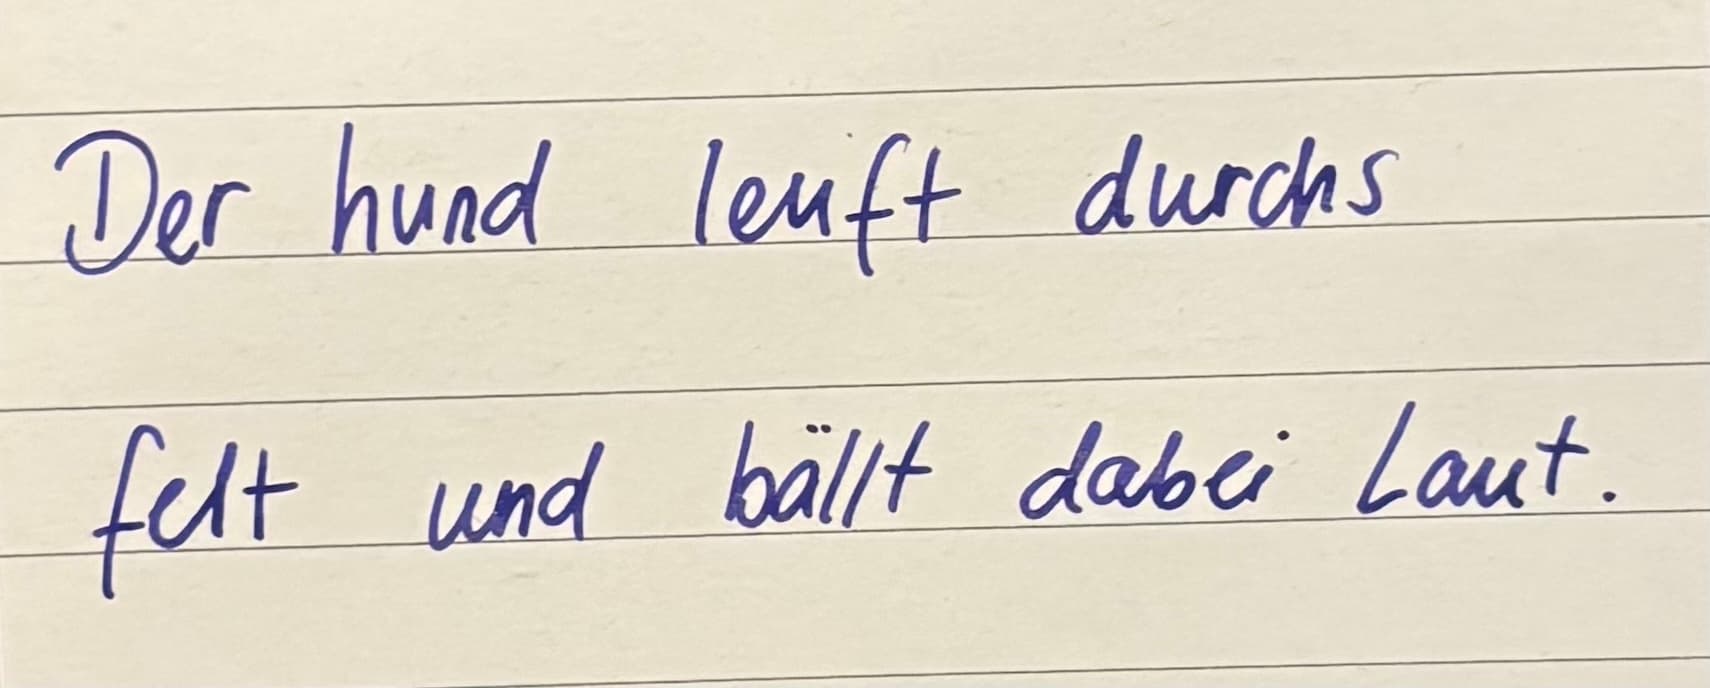 Der hund leuft durchs
felt und bällt dabei Laut.